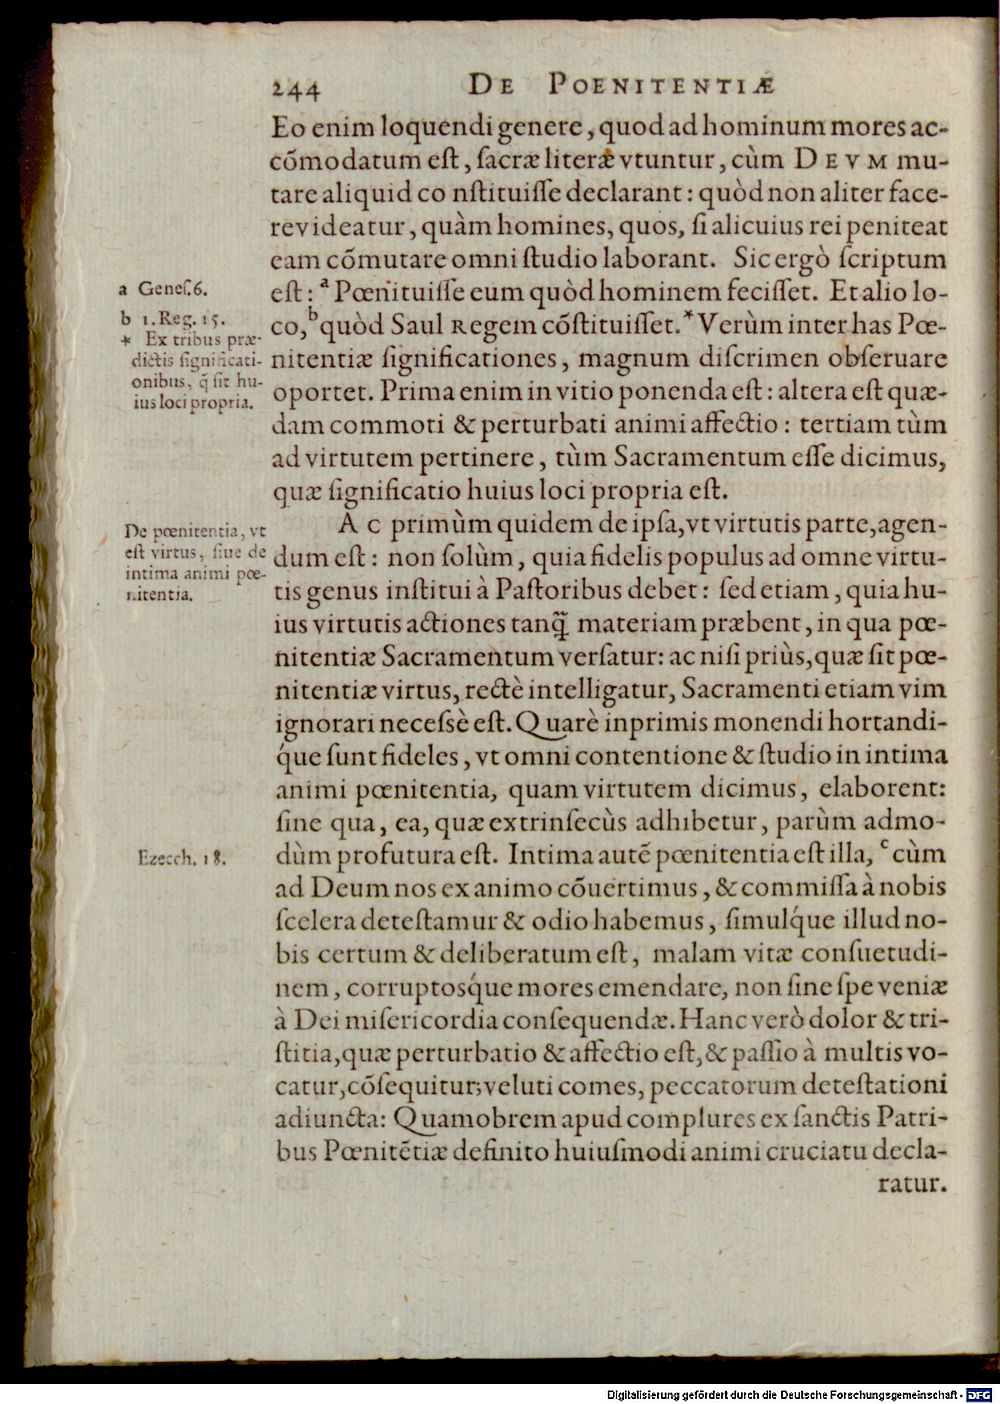 244 DE POENITENTIÆ
Eo enim loquendi genere, quod ad hominum mores ac-
cõmodatum eſt, ſacræ literæ vtuntur, cùm DEVM mu-
tare aliquid co nſtituiſſe declarant: quòd non aliter face-
re videatur, quàm homines, quos, ſi alicuius rei peniteat
eam cõmutare omni ſtudio laborant. Sic ergò ſcriptum
eſt: a Pœnituiſſe eum quòd hominem feciſſet. Et alio lo-
co, b quòd Saul Regem cõſtituiſſet.* Verùm inter has Pœ-
nitentiæ ſignificationes, magnum diſcrimen obſeruare
oportet. Prima enim in vitio ponenda eſt: altera eſt quæ-
dam commoti & perturbati animi affectio: tertiam tùm
ad virtutem pertinere, tùm Sacramentum eſſe dicimus,
quæ ſignificatio huius loci propria eſt.
a Geneſ.6.
b 1.Reg.15.
* Ex tribus præ-
dictis ſignificati-
onibus, q̃ ſit hu-
ius loci propria.
AC primùm quidem de ipſa, vt virtutis parte, agen-
dum eſt: non ſolùm, quia fidelis populus ad omne virtu-
tis genus inſtitui à Paſtoribus debet: ſed etiam, quia hu-
ius virtutis actiones tanq̃ materiam præbent, in qua pœ-
nitentiæ Sacramentum verſatur: ac niſi priùs, quæ ſit pœ-
nitentiæ virtus, rectè intelligatur, Sacramenti etiam vim
ignorari neceſsè eſt. Quarè inprimis monendi hortandi-
q́ue ſunt fideles, vt omni contentione & ſtudio in intima
animi pœnitentia, quam virtutem dicimus, elaborent:
ſine qua, ea, quæ extrinſecùs adhibetur, parùm admo-
dùm profutura eſt. Intima autẽ pœnitentia eſt illa, c cùm
ad Deum nos ex animo cõuertimus, & commiſſa à nobis
ſcelera deteſtamur & odio habemus, ſimulq́ue illud no-
bis certum & deliberatum eſt, malam vitæ conſuetudi-
nem, corruptosq́ue mores emendare, non ſine ſpe veniæ
à Dei miſericordia conſequendæ. Hanc verò dolor & tri-
ſtitia, quæ perturbatio & affectio eſt, & paſſio à multis vo-
catur, cõſequitur, veluti comes, peccatorum deteſtationi
adiuncta: Quamobrem apud complures ex ſanctis Patri-
bus Pœnitẽtiæ definito huiuſmodi animi cruciatu decla-
ratur.
De pœnitentia, vt
eſt virtus, ſiue de
intima animi pœ-
nitentia.
Ezech. 18.
Digitalisierung gefördert durch die Deutsche Forschungsgemeinschaft - DFG